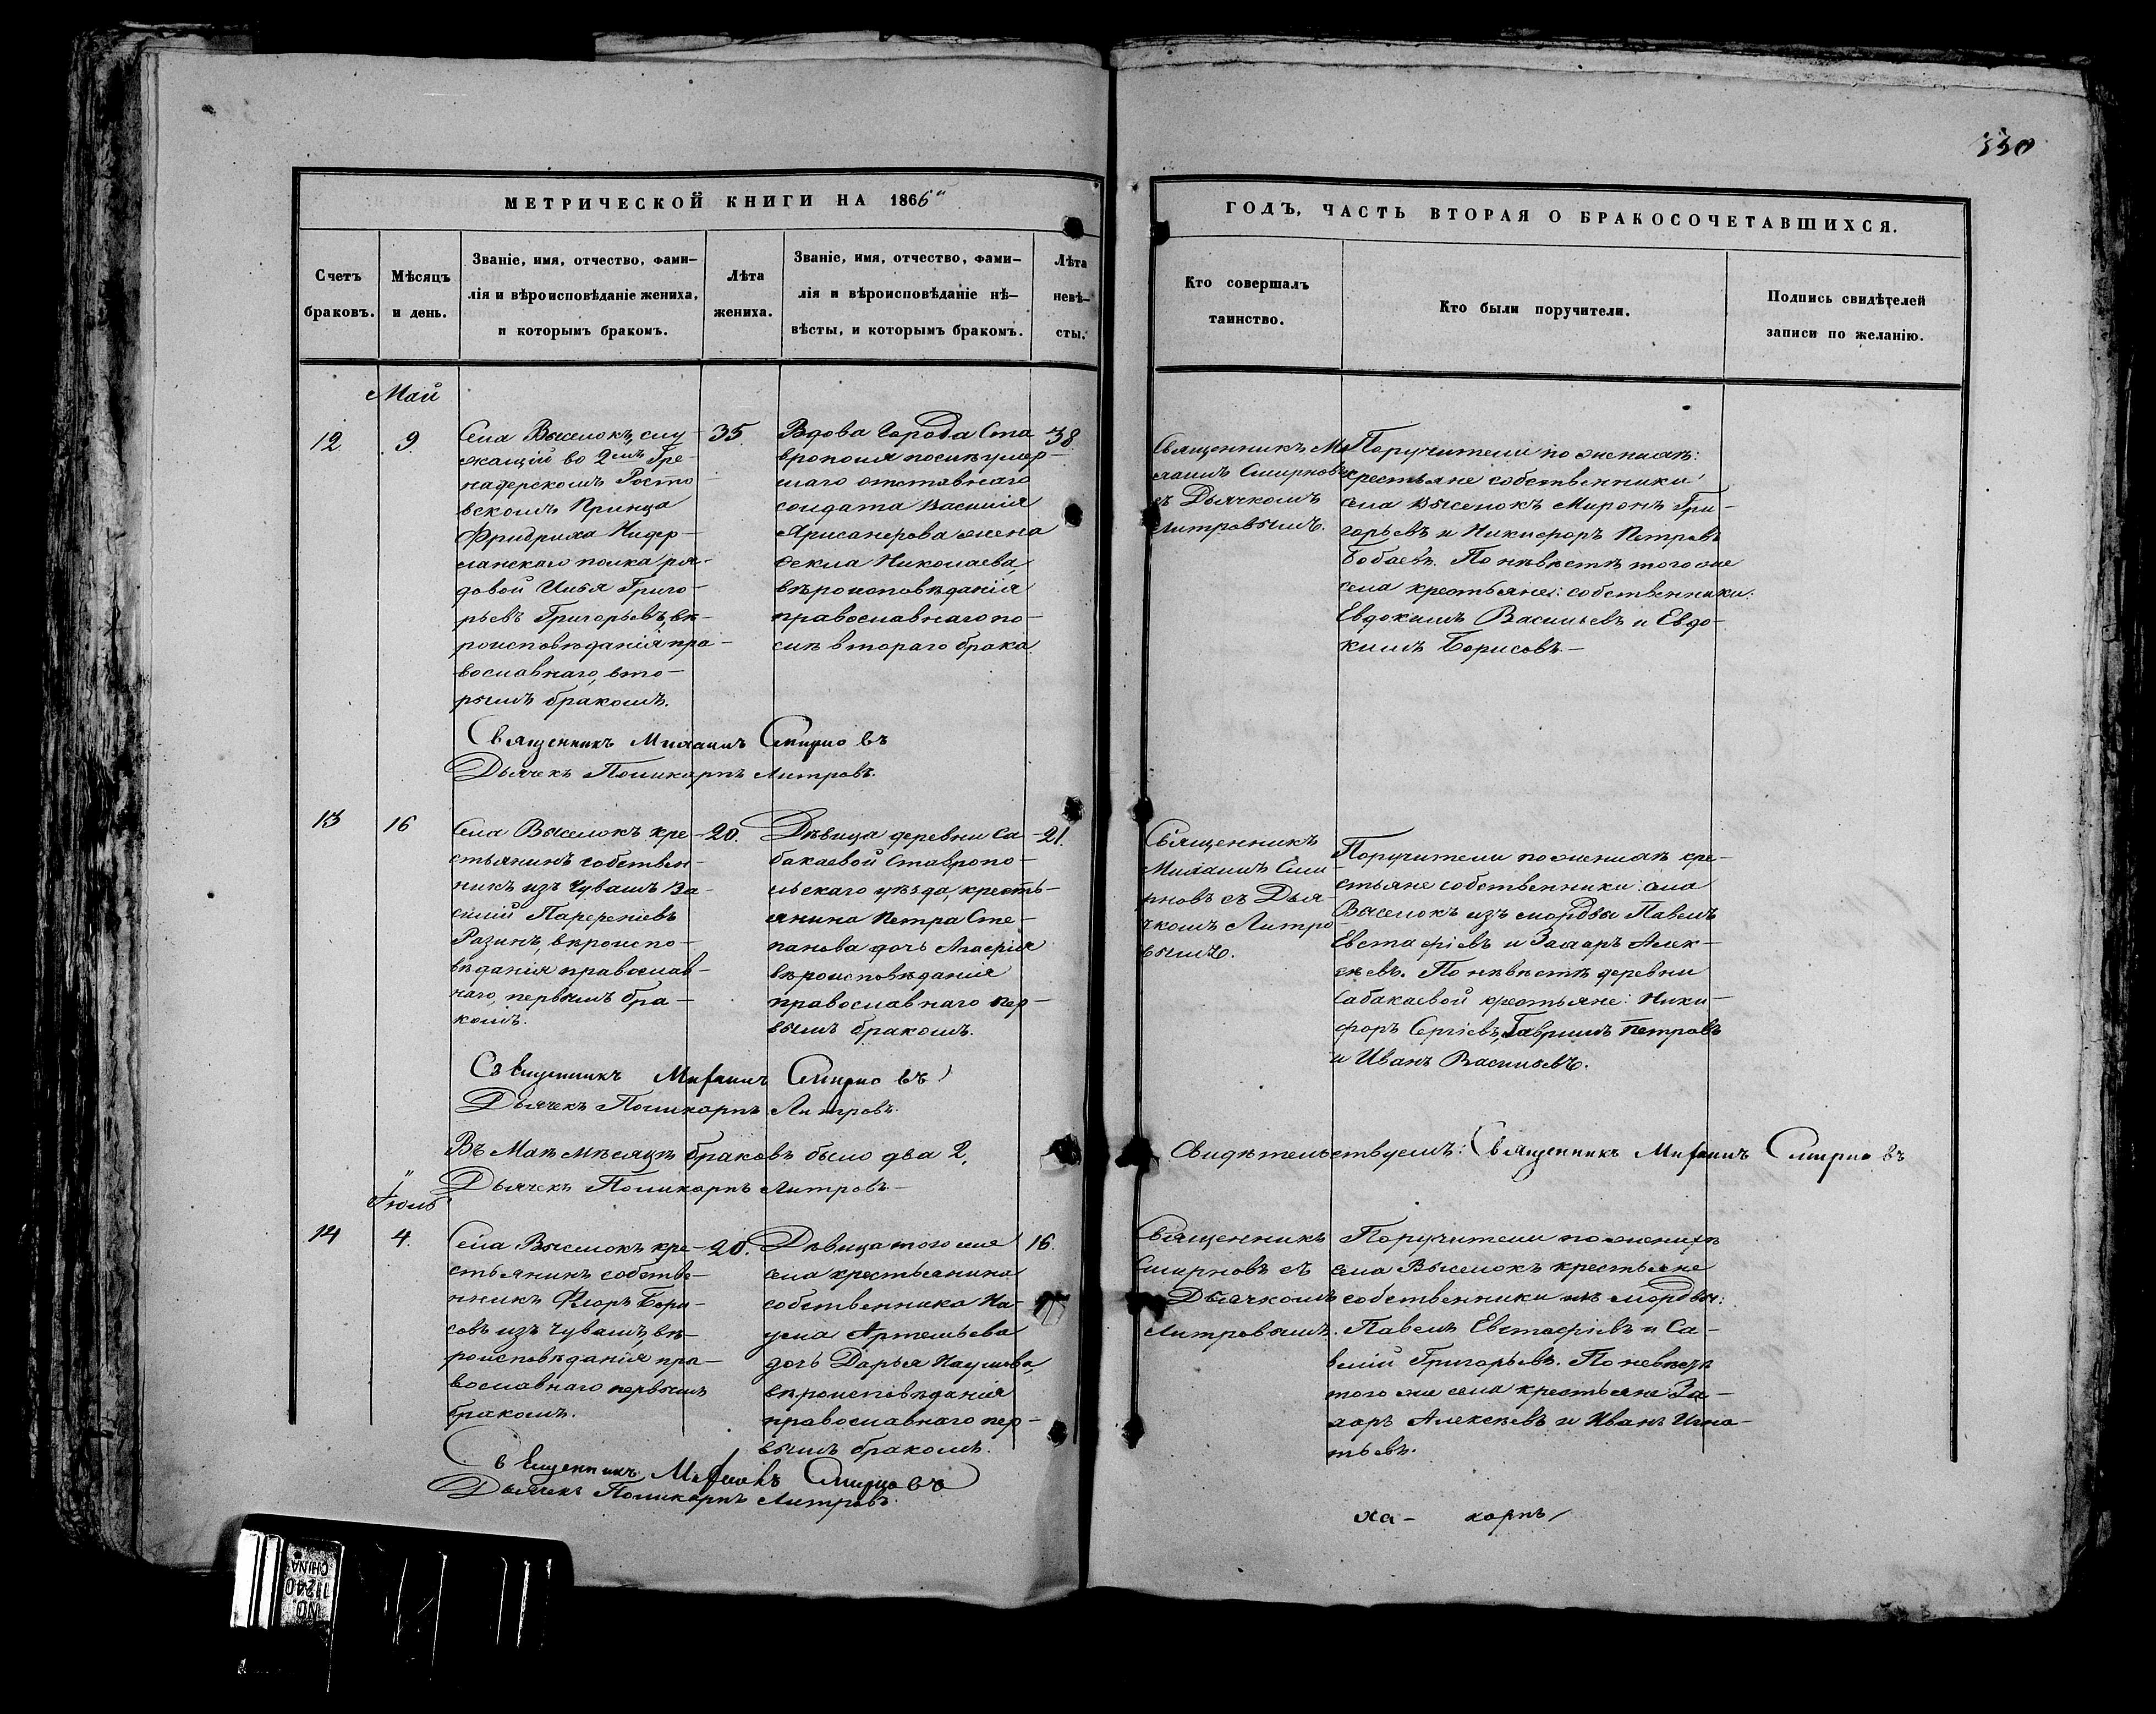 330
МЕТРИЧЕСКОЙ КНИГИ НА 1866й
ГОДЪ, ЧАСТЬ ВТОРАЯ О БРАКОСОЧЕТАВШИХСЯ.
Счетъ
браковъ.
Мѣсяцъ
и день.
Званіе, имя, отчество, фами-
лія и вѣроисповѣданіе жениха,
и которымъ бракомъ.
Лѣта
жениха.
Званіе, имя, отчество, фами-
лія и вѣроисповѣданіе нѣ-
вѣсты, и которымъ бракомъ.
Лѣта
невѣ-
сты.
Кто совершалъ
таинство.
Кто были поручители.
Подпись свидѣтелей
записи по желанію.
Май
12
9.
Села Выселокъ, слу-
жащій во 2емъ Гре-
надерскомъ Росто-
вскомъ Принца
Фридриха Нидер-
ланскаго полка ря-
довой Илья Григо-
рьевъ Григорьевъ, вѣ-
роисповѣданія пра-
вославнаго, вто-
рымъ бракомъ.
35.
Вдова Города Ста-
врополя послѣ умер-
шаго отставнаго
солдата Василія
жена
Фекла Николаева,
вѣроисповѣданія
православнаго по-
слѣ втораго брака.
38.
Священникъ Ми-
хаилъ Смирновъ
съ Дьячкомъ
Литровымъ.
Поручители по женихѣ:
крестьяне собственники
села Выселокъ Миронъ Гри-
горьевъ и Никифоръ Петровъ
Бобаевъ. По невѣстѣ того же
села крестьяне: собственники:
Евдокимъ Васильевъ и Евдо-
кимъ Борисовъ.—
Священникъ Михаилъ Смирновъ
Дьячекъ Поликарпъ Литровъ.
13
16
Села Выселокъ кре-
стьянинъ собствен-
никъ изъ Чувашъ Ва-
силій Парфеніевъ
Разинъ, вѣроиспо-
вѣданія православ-
наго, первымъ бра-
комъ.
20.
Дѣвица деревни Са-
бакаевой Ставропо-
льскаго уѣзда, кресть-
янина Петра Сте-
панова дочь Агафія
вѣроисповѣданія
православнаго пер-
вымъ бракомъ.
21.
Священникъ
Михаилъ Сми-
рновъ съ Дья-
чкомъ Литро-
вымъ.
Поручители по женихѣ кре-
стьяне собственники: села
Выселокъ изъ мордвы Павелъ
Евстафіевъ и Захаръ Алек-
сѣевъ. По невѣстѣ деревни
Сабакаевой крестьяне: Ники-
форъ Сергіевъ, Гаврилъ Петровъ
и Иванъ Васильевъ.
Священникъ Михаилъ Смирновъ
Дьячекъ Поликарпъ Литровъ.
Въ Маѣ мѣсяцѣ браковъ было два 2.
Свидѣтельствуемъ: Священникъ Михаилъ Смирновъ
Дьячекъ Поликарпъ Литровъ.—
Іюль
14
4.
Села Выселокъ кре-
стьянинъ собстве-
нникъ Флоръ Бори-
совъ изъ Чувашъ, вѣ-
роисповѣданія пра-
вославнаго первымъ
бракомъ.
20.
Дѣвица того же
села крестьянина
собственника На-
ума Артемьева
дочь Дарья Наумова,
вѣроисповѣданія
православнаго пер-
вымъ бракомъ.
16.
Священникъ
Смирновъ съ
Дьячкомъ
Литровымъ.
Поручители по женихѣ
села Выселокъ крестьяне
собственники изъ мордвы:
Павелъ Евстафіевъ и Са-
велій Григорьевъ. По невѣстѣ
того же села крестьяне За-
харъ Алексѣевъ и Иванъ Игна-
тьевъ.
Священникъ Михаилъ Смирновъ
Дьячекъ Поликарпъ Литровъ.
ха- карпъ
NO
11240
CHINA